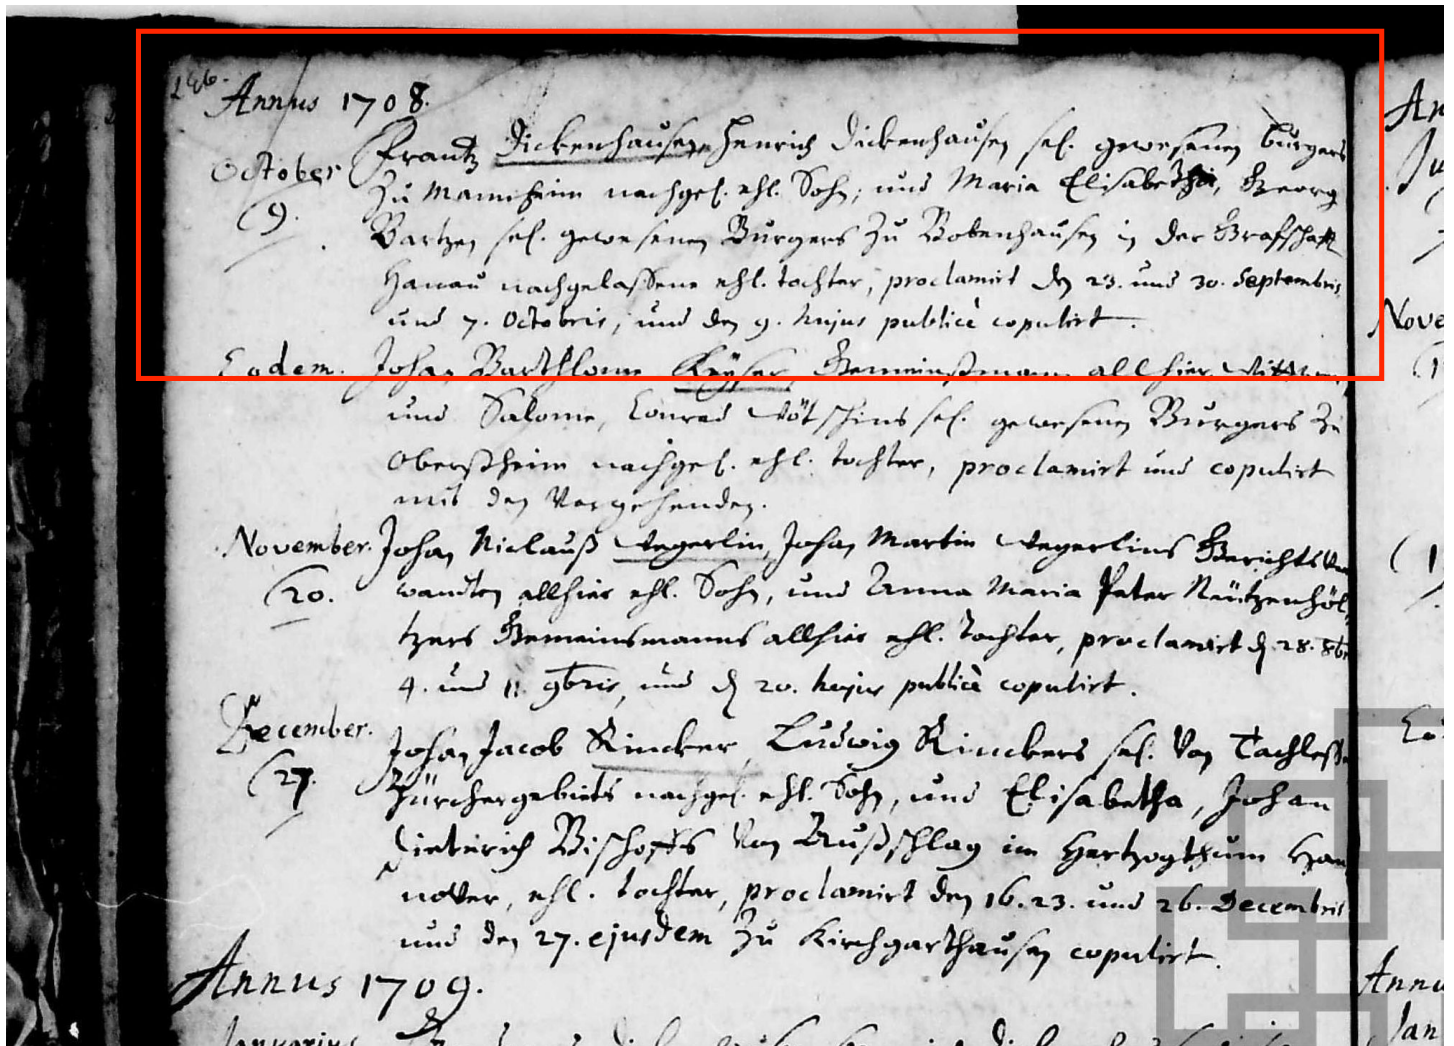 246.
Annus 1708.
October 9. Frantz Dickenhausen, Henrich Dickenhausen sel. gewesenen burgers
zu Mannheim nachgel. ehl. Sohn, und Maria Elisabetha, Georg
Bartzen sel. gewesenen Burgers zu Bobenhausen in der Grafschafft
Hanau nachgelaßene ehl. tochter, proclamirt den 23. und 30. Septembris,
und 7. Octobris, und den 9. hujus publicè copulirt.
Eodem. Johan Barthlome Keyser, Gemeinßmann allhier, Wittwer,
und Salome, Conrad sel. gewesenen Burgers zu
Oberßheim nachgel. ehl. tochter, proclamirt und copulirt
mit den Vorgehenden.
November 20. Johan Niclauß Wegerlin, Johan Martin Wegerlins Gerichts Ver
wandten allhier ehl. Sohn, und Anna Maria Peter Neutzenhöl
tzers Gemeinsmanns allhier ehl. Tochter, proclamirt d. 28. 8br
4. und 11. 9bris, und d. 20. hujus publicè copulirt.
December 27. Johan Jacob Rincker, Ludwig Rinckers sel. Von
Zürchergebiets nachgel. ehl. Sohn, und Elisabetha, Johan
Dieterich Bischoffs Von Außschlag im Hertzogthum Han
nover, ehl. tochter, proclamirt den 16. 23. und 26. Decembris
und den 27. ejusdem zu Kirchgarthausen copulirt.
Annus 1709.
Januarius